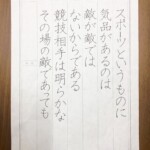 スポーツというものに
気品があるのは
敵が敵では
ないからである
競技相手は明らかな
その場の敵であっても